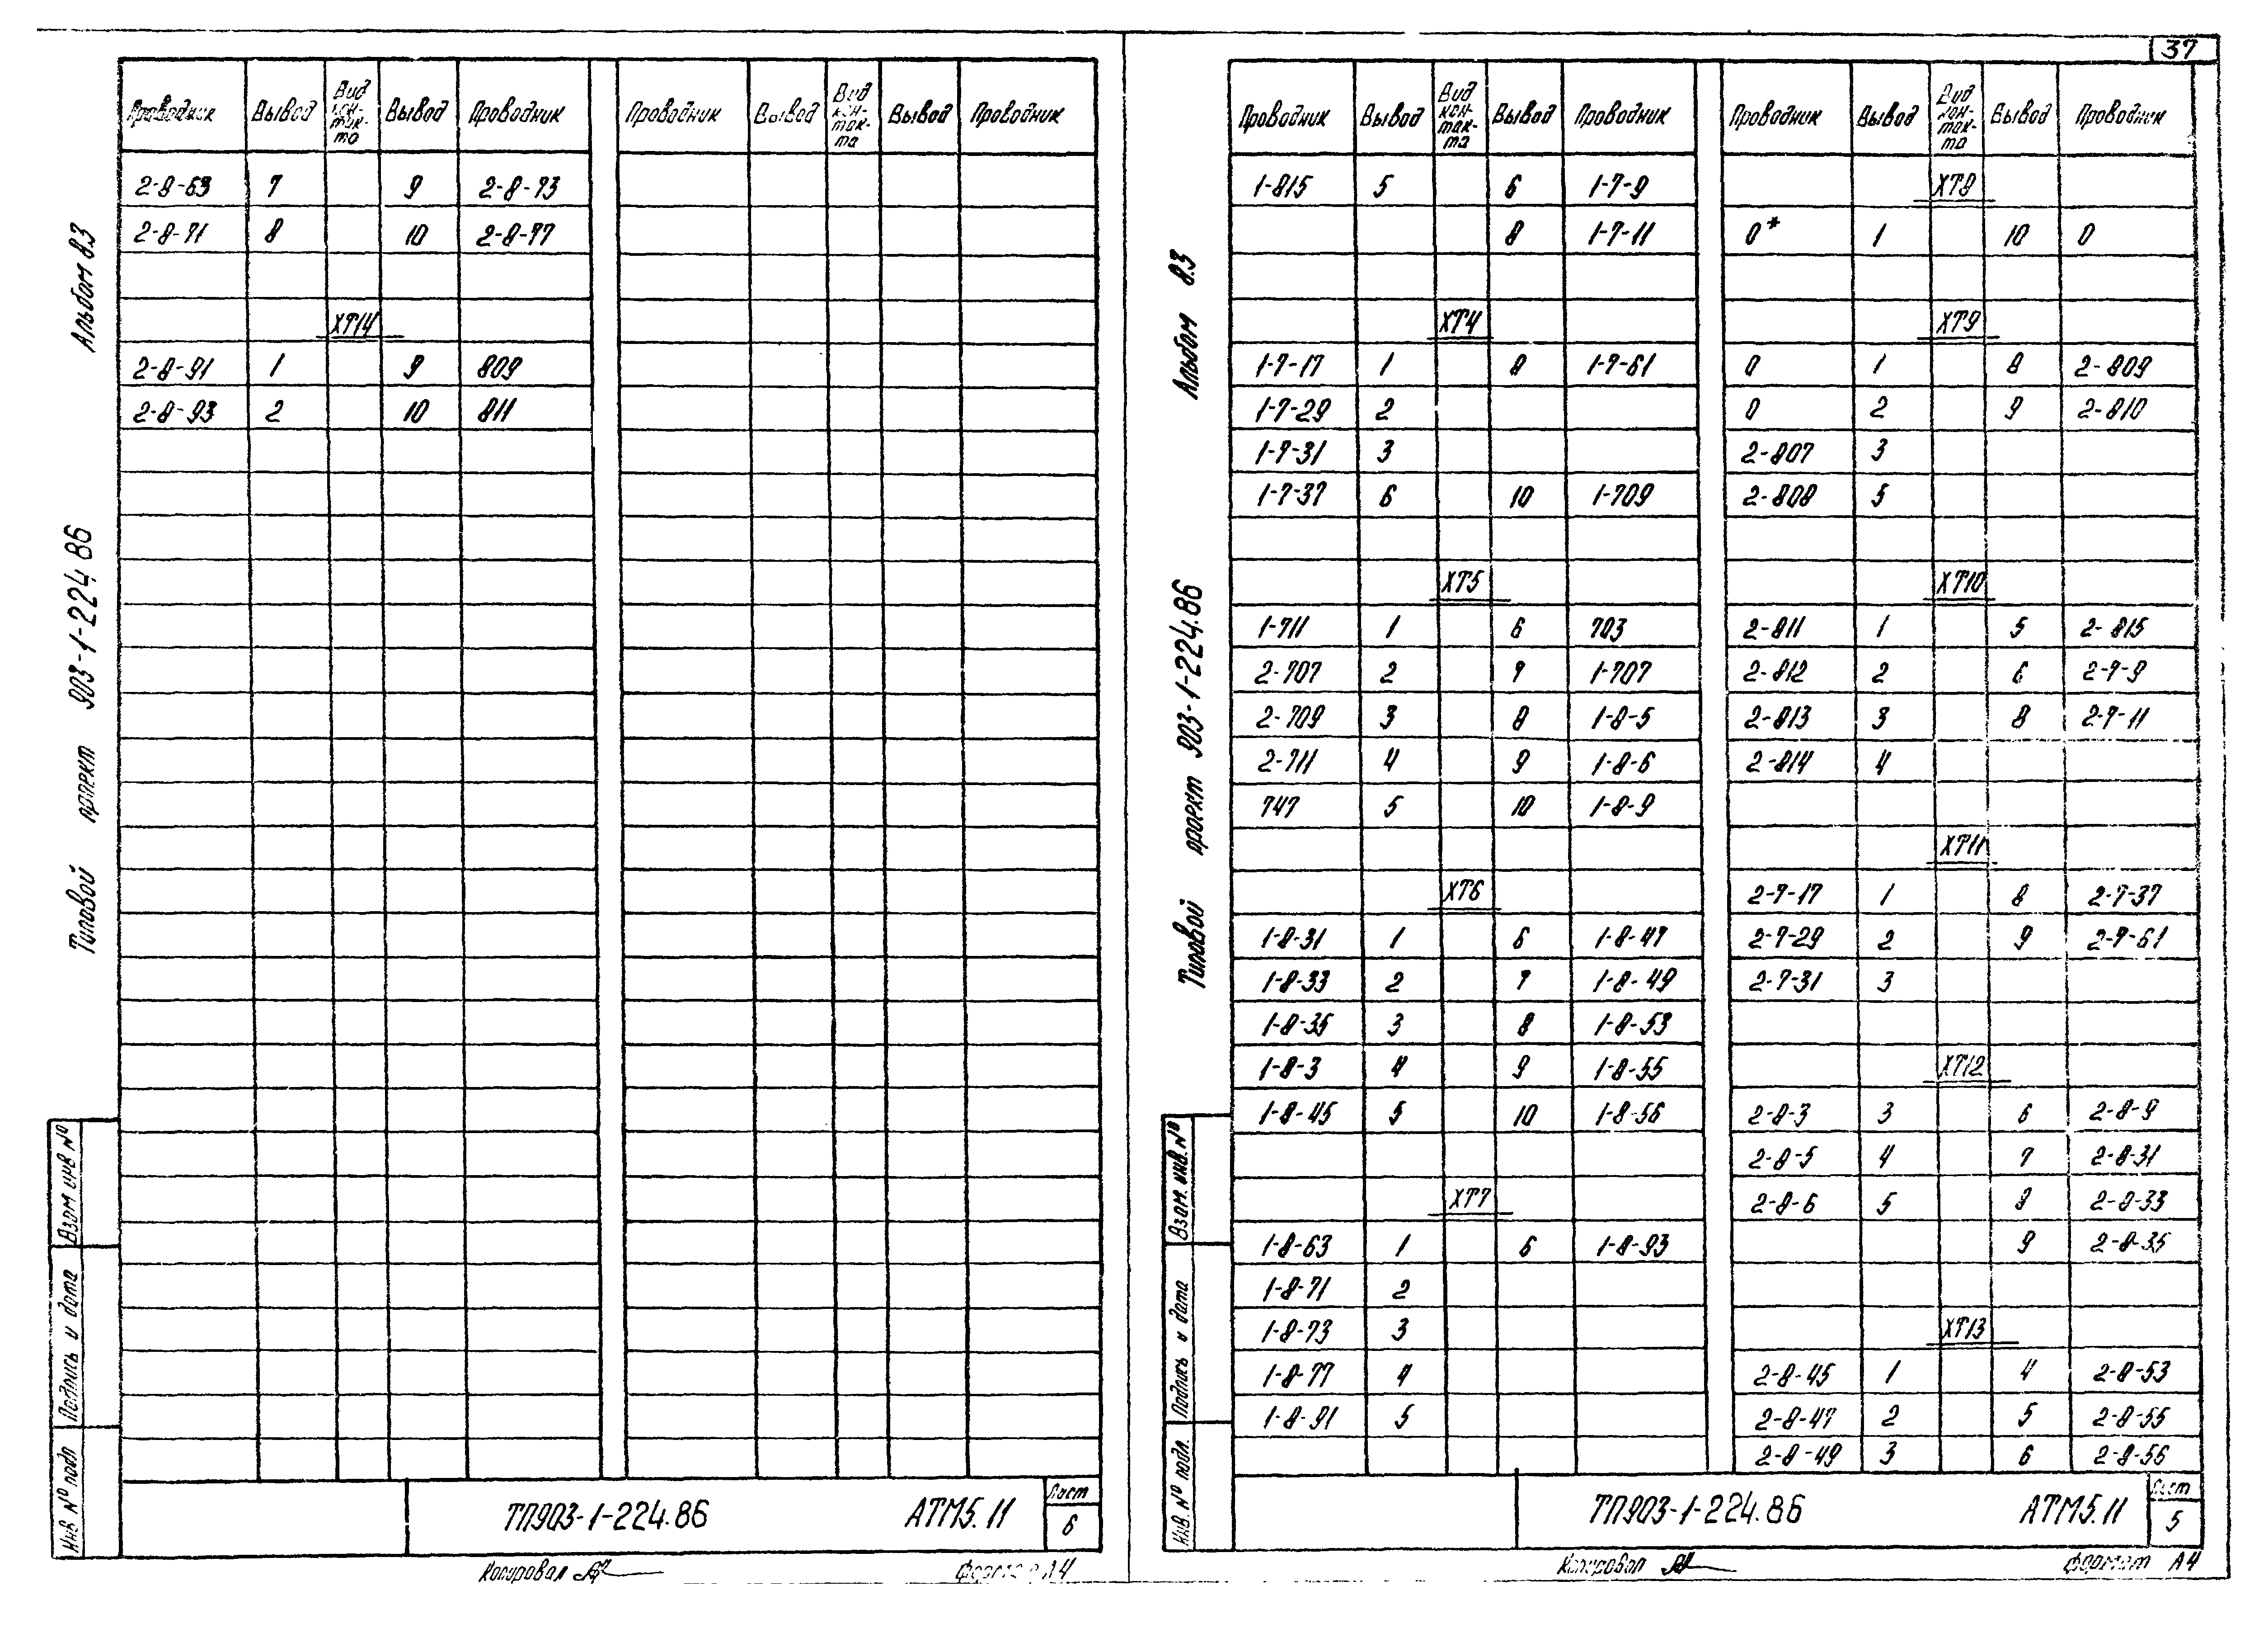 37
Проводник Вывод Вид кон-так-та Вывод Проводник Проводник Вывод Вид кон-так-та Вывод Проводник
2-8-63 7 9 2-8-73
2-8-71 8 10 2-8-77
ХТ14
2-8-91 1 9 809
2-8-93 2 10 811
Альбом 8.3
Типовой проект 903-1-224.86
Взам инв №
Подпись и дата
Инв № подл
ТП903-1-224.86 АТМ5.11 Лист 6
Копировал Формат А4
Проводник Вывод Вид кон-так-та Вывод Проводник Проводник Вывод Вид кон-так-та Вывод Проводник
1-815 5 6 1-7-9 ХТ8
8 1-7-11 0* 1 10 0
ХТ4 ХТ9
1-7-17 1 8 1-7-61 0 1 8 2-809
1-7-29 2 0 2 9 2-810
1-7-31 3 2-807 3
1-7-37 6 10 1-709 2-808 5
ХТ5 ХТ10
1-711 1 6 703 2-811 1 5 2-815
2-707 2 7 1-707 2-812 2 6 2-7-9
2-709 3 8 1-8-5 2-813 3 8 2-7-11
2-711 4 9 1-8-6 2-814 4
747 5 10 1-8-9
ХТ11
ХТ6 2-7-17 1 8 2-7-37
1-8-31 1 6 1-8-47 2-7-29 2 9 2-7-61
1-8-33 2 7 1-8-49 2-7-31 3
1-8-35 3 8 1-8-53
1-8-3 4 9 1-8-55 ХТ12
1-8-45 5 10 1-8-56 2-8-3 3 6 2-8-9
2-8-5 4 7 2-8-31
ХТ7 2-8-6 5 8 2-8-33
1-8-63 1 6 1-8-93 9 2-8-35
1-8-71 2
1-8-73 3 ХТ13
1-8-77 4 2-8-45 1 4 2-8-53
1-8-91 5 2-8-47 2 5 2-8-55
2-8-49 3 6 2-8-56
Альбом 8.3
Типовой проект 903-1-224.86
Взам. инв. №
Подпись и дата
Инв. № подл.
ТП903-1-224.86 АТМ5.11 Лист 5
Копировал Формат А4